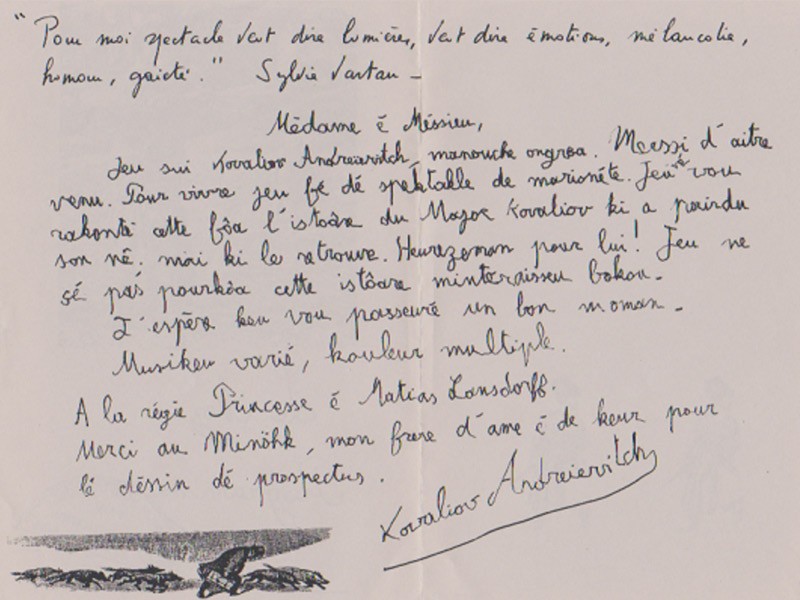 "Pour moi spectacle veut dire lumières, veut dire émotions, mélancolie,
humour, gaieté." Sylvie Vartan -
Médame é Méssieu,
Jeu sui Kovaliov Andreievitch, manouche ongroa. Meessi d'aitre
venu. Pour vivre jeu fé dé spektaklle de marionéte. Jeu vé vou
rakonté cette fôa l'istoâre du Major Kovaliov ki a pairdu
son né. mai ki le retrouve. Heurezeman pour lui! Jeu ne
sé pas pourkôa cette istôare mintéraisseu bokou.
J'espère keu vou passeuré un bon moman.
Musikeu varié, kouleur multiple.
A la régie Princesse é Matias Lansdorff.
Merci au Minôhk, mon frere d'ame é de keur pour
lé déssin dé prospectus.
Kovaliov Andreievitch